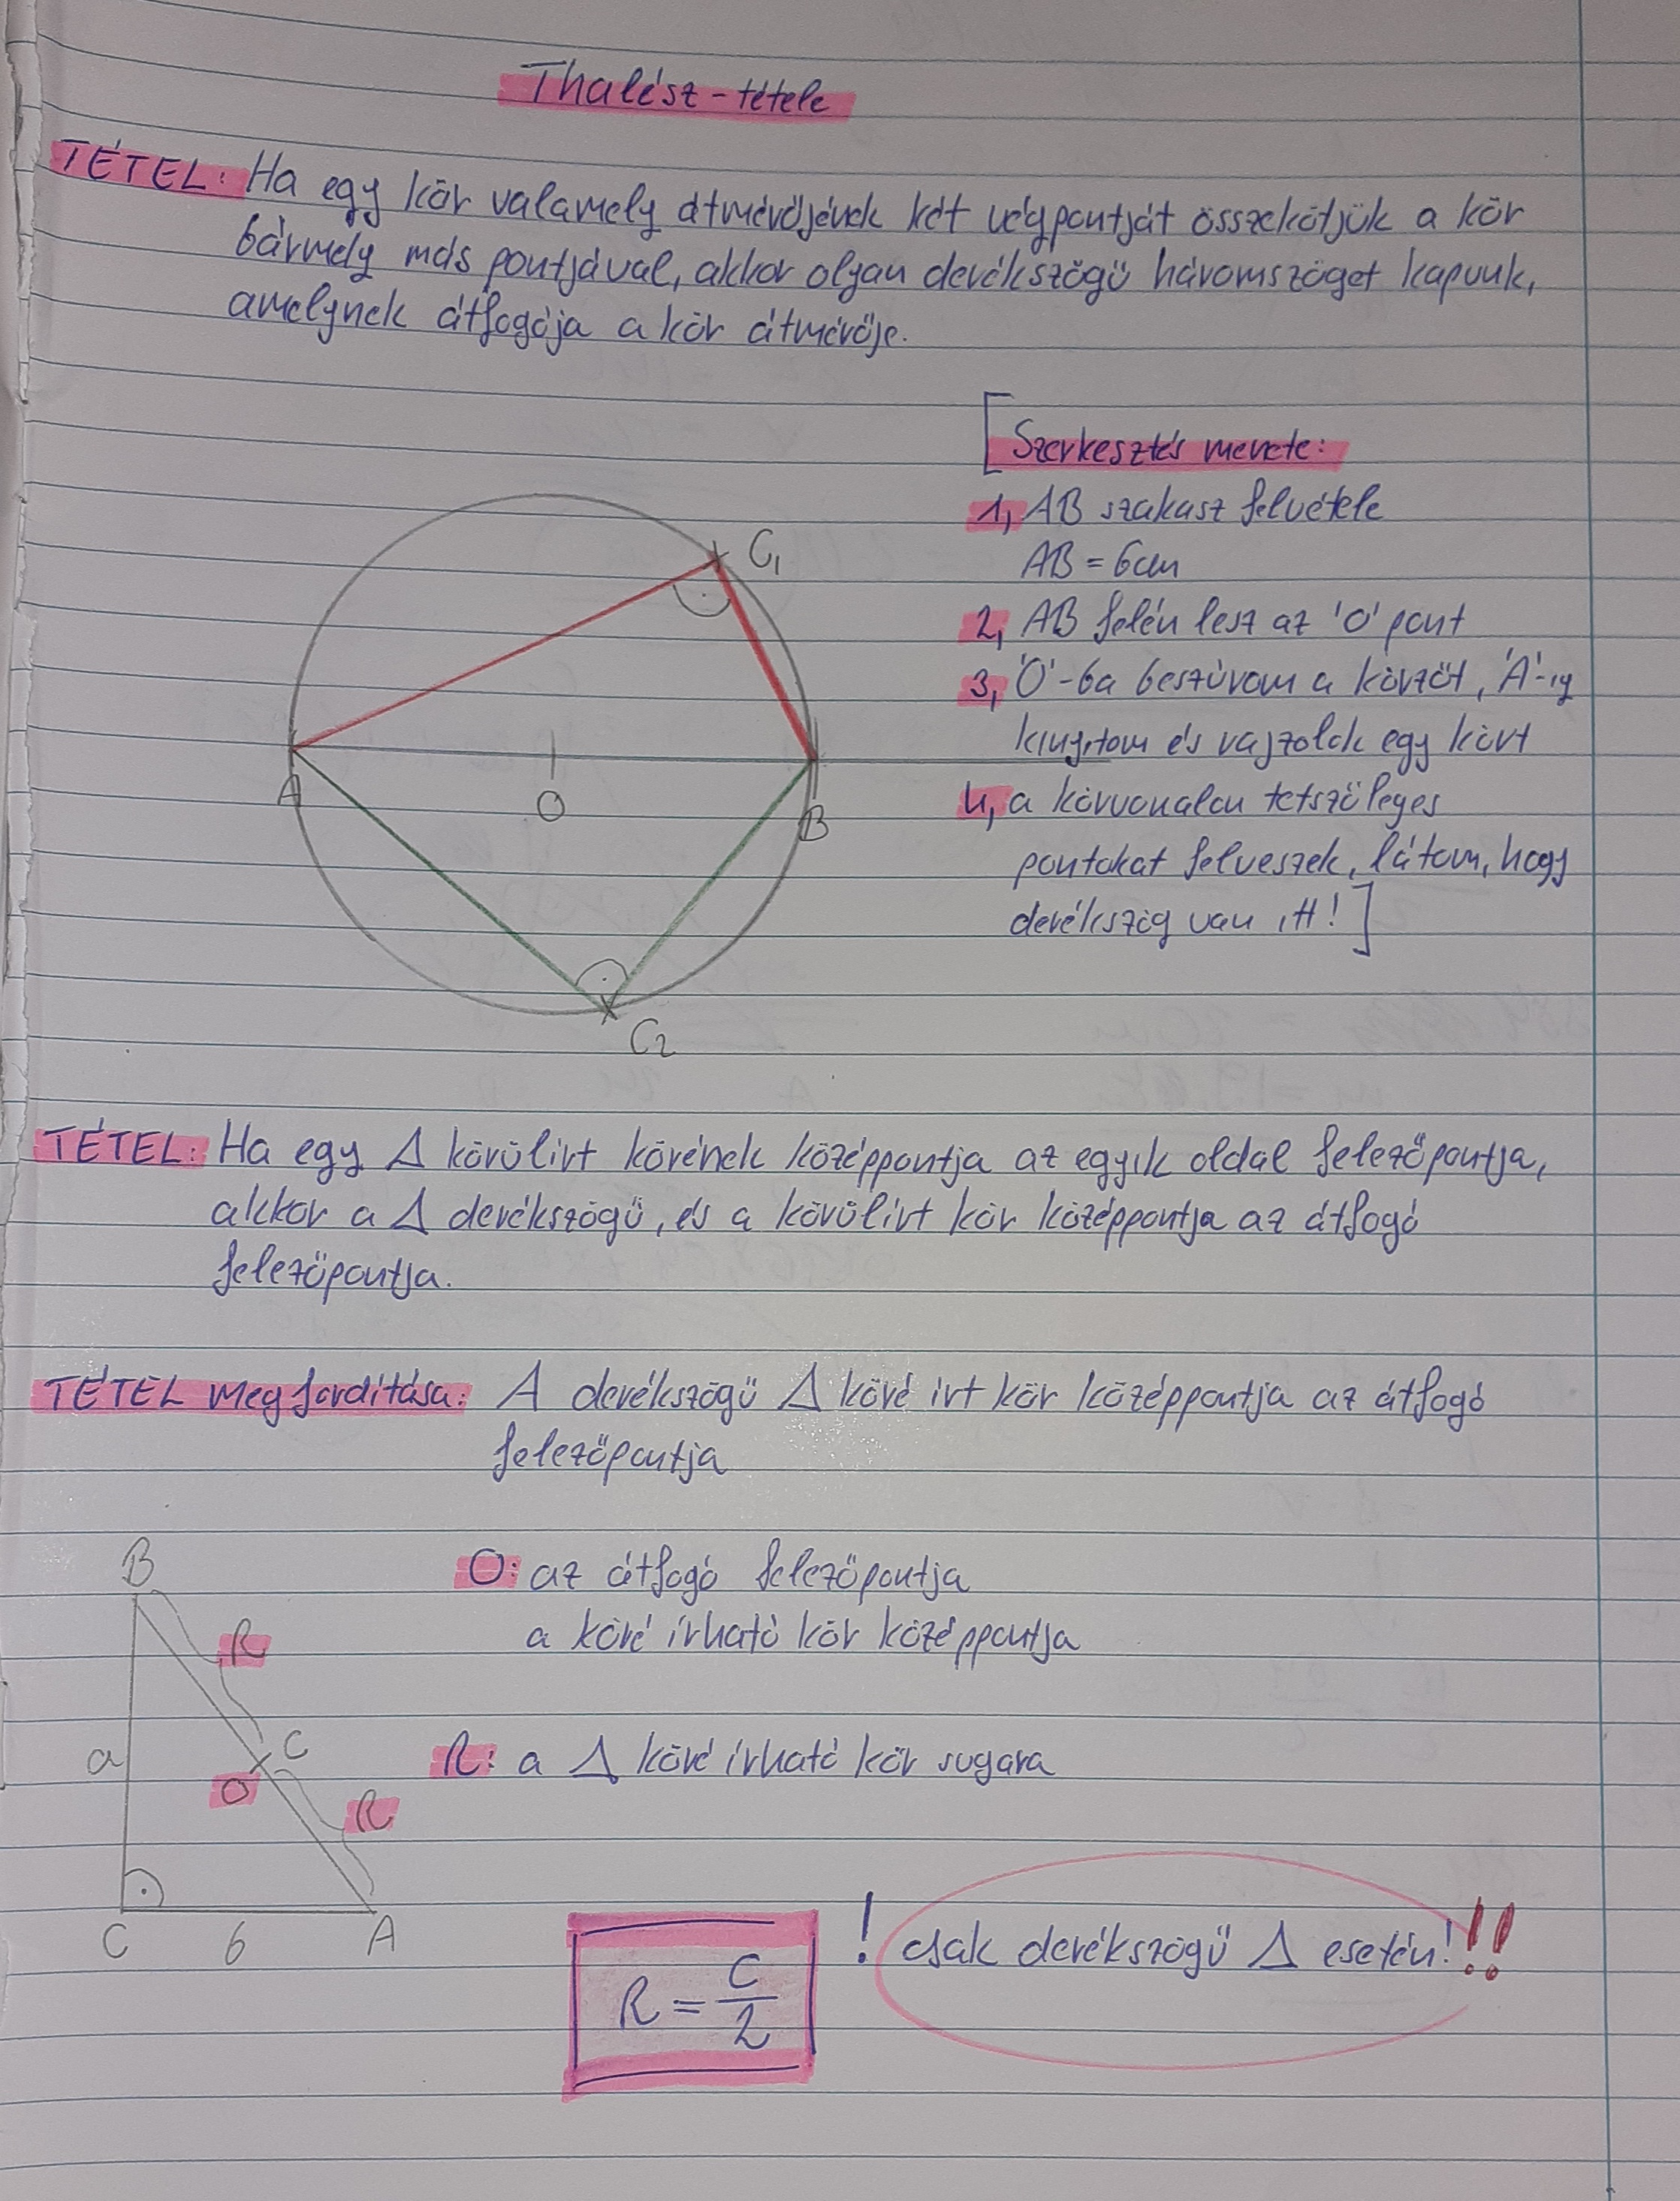 Thalész-tétele
TÉTEL: Ha egy kör valamely átmérőjének két végpontját összekötjük a kör
bármely más pontjával, akkor olyan derékszögű háromszöget kapunk,
amelynek átfogója a kör átmérője.
[Szerkesztés menete:
1, AB szakasz felvétele
AB = 6cm
2, AB felén lesz az 'O' pont
3, 'O'-ba beszúrom a körzőt, 'A'-ig
kinyitom és rajzolok egy kört
4, a körvonalon tetszőleges
pontokat felveszek, látom, hogy
derékszög van itt!]
C1
A
O
B
C2
TÉTEL: Ha egy Δ körülírt körének középpontja az egyik oldal felezőpontja,
akkor a Δ derékszögű, és a körülírt kör középpontja az átfogó
felezőpontja.
TÉTEL megfordítása: A derékszögű Δ köré írt kör középpontja az átfogó
felezőpontja
B
O: az átfogó felezőpontja
a köré írható kör középpontja
R
a
C
O
R: a Δ köré írható kör sugara
R
C
b
A
R = C/2
! csak derékszögű Δ esetén!!!